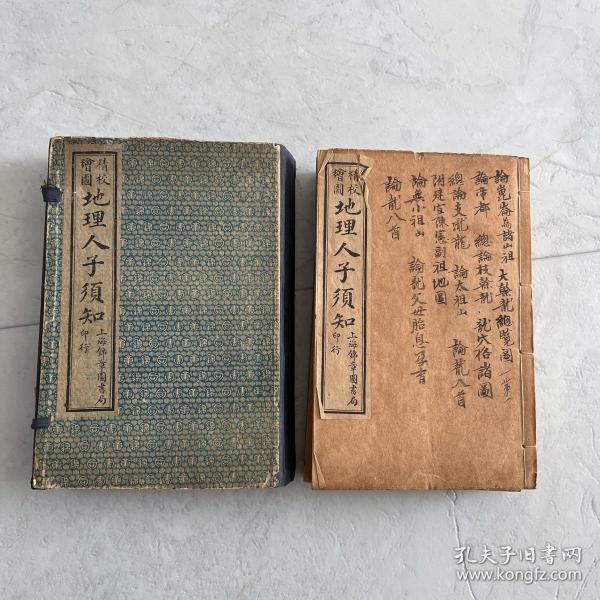 精校
繪圖
地理人子須知
上海錦章圖書局
印行
精校
繪圖
地理人子須知
上海錦章圖書局
印行
論崑崙為諸山祖 大幹龍總覽圖
論帝都 總論枝幹龍 龍穴格諸圖
總論支龍 論太祖山 論龍入首
附建安陳憲副祖地圖
論少祖山 論龍父母胎息孕育
論龍入首
孔夫子旧书网
www.kongfz.com